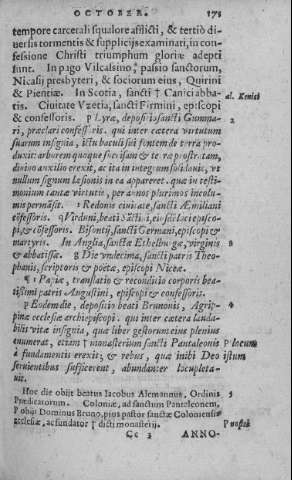 OCTOBER. 171
tempore carcerali squalore afflicti, & tertiò di-
uersis tormentis & supplicijs examinati, in con-
fessione Christi triumphum gloriæ adepti
sunt. In pago Vilcasino, passio sanctorum,
Nicasij presbyteri, & sociorum eius, Quirini
& Pientiæ. In Scotia, sancti † Canici abba- al. Kenici
tis. Ciuitate Vzetia, sancti Firmini, episcopi
& confessoris. p Lyræ, depositio sancti Gumma- 2
ri, præclari confessoris. qui inter cætera virtutum
suarum insignia, ictu baculi sui fontem de terra pro-
duxit: arborem quoque succisam & terra prostratam,
diuino auxilio erexit, ac ita in integrum solidauit, vt
nullum signum læsionis in ea appareret. quæ in testi-
monium tantæ virtutis, per annos plurimos incolu-
mis permansit. Redonis ciuitate, sancti Æmiliani
cõfessoris. q Virduni, beati eiusdē loci episco-
pi, & cõfessoris. Bisontij, sancti Germani, episcopi &
martyris. In Anglia, sanctæ Ethelburgæ, virginis 8
& abbatissæ. g Die vndecima, sancti patris Theo-
phanis, scriptoris & poetæ, episcopi Niceæ.
¶ Papiæ, translatio & reconditio corporis bea-
tissimi patris Augustini, episcopi & confessoris.
p Eodem die, depositio beati Brunonis, Agrip- 4
pinæ ecclesiæ archiepiscopi. qui inter cætera lauda-
bilis vitæ insignia, quæ liber gestorum eius plenius
enumerat, etiam † monasterium sancti Pantaleonis P locum
à fundamentis erexit, & rebus, quæ inibi Deo istum
seruientibus sufficerent, abundanter locupleta-
uit.
Hoc die obijt beatus Iacobus Alemannus, Ordinis 5
Prædicatorum. Coloniæ, ad sanctum Pantaleonem,
P obijt Dominus Bruno, pius pastor sanctæ Coloniensis
ecclesiæ, ac fundator † dicti monasterij. P nostri
Cc 3 ANNO-